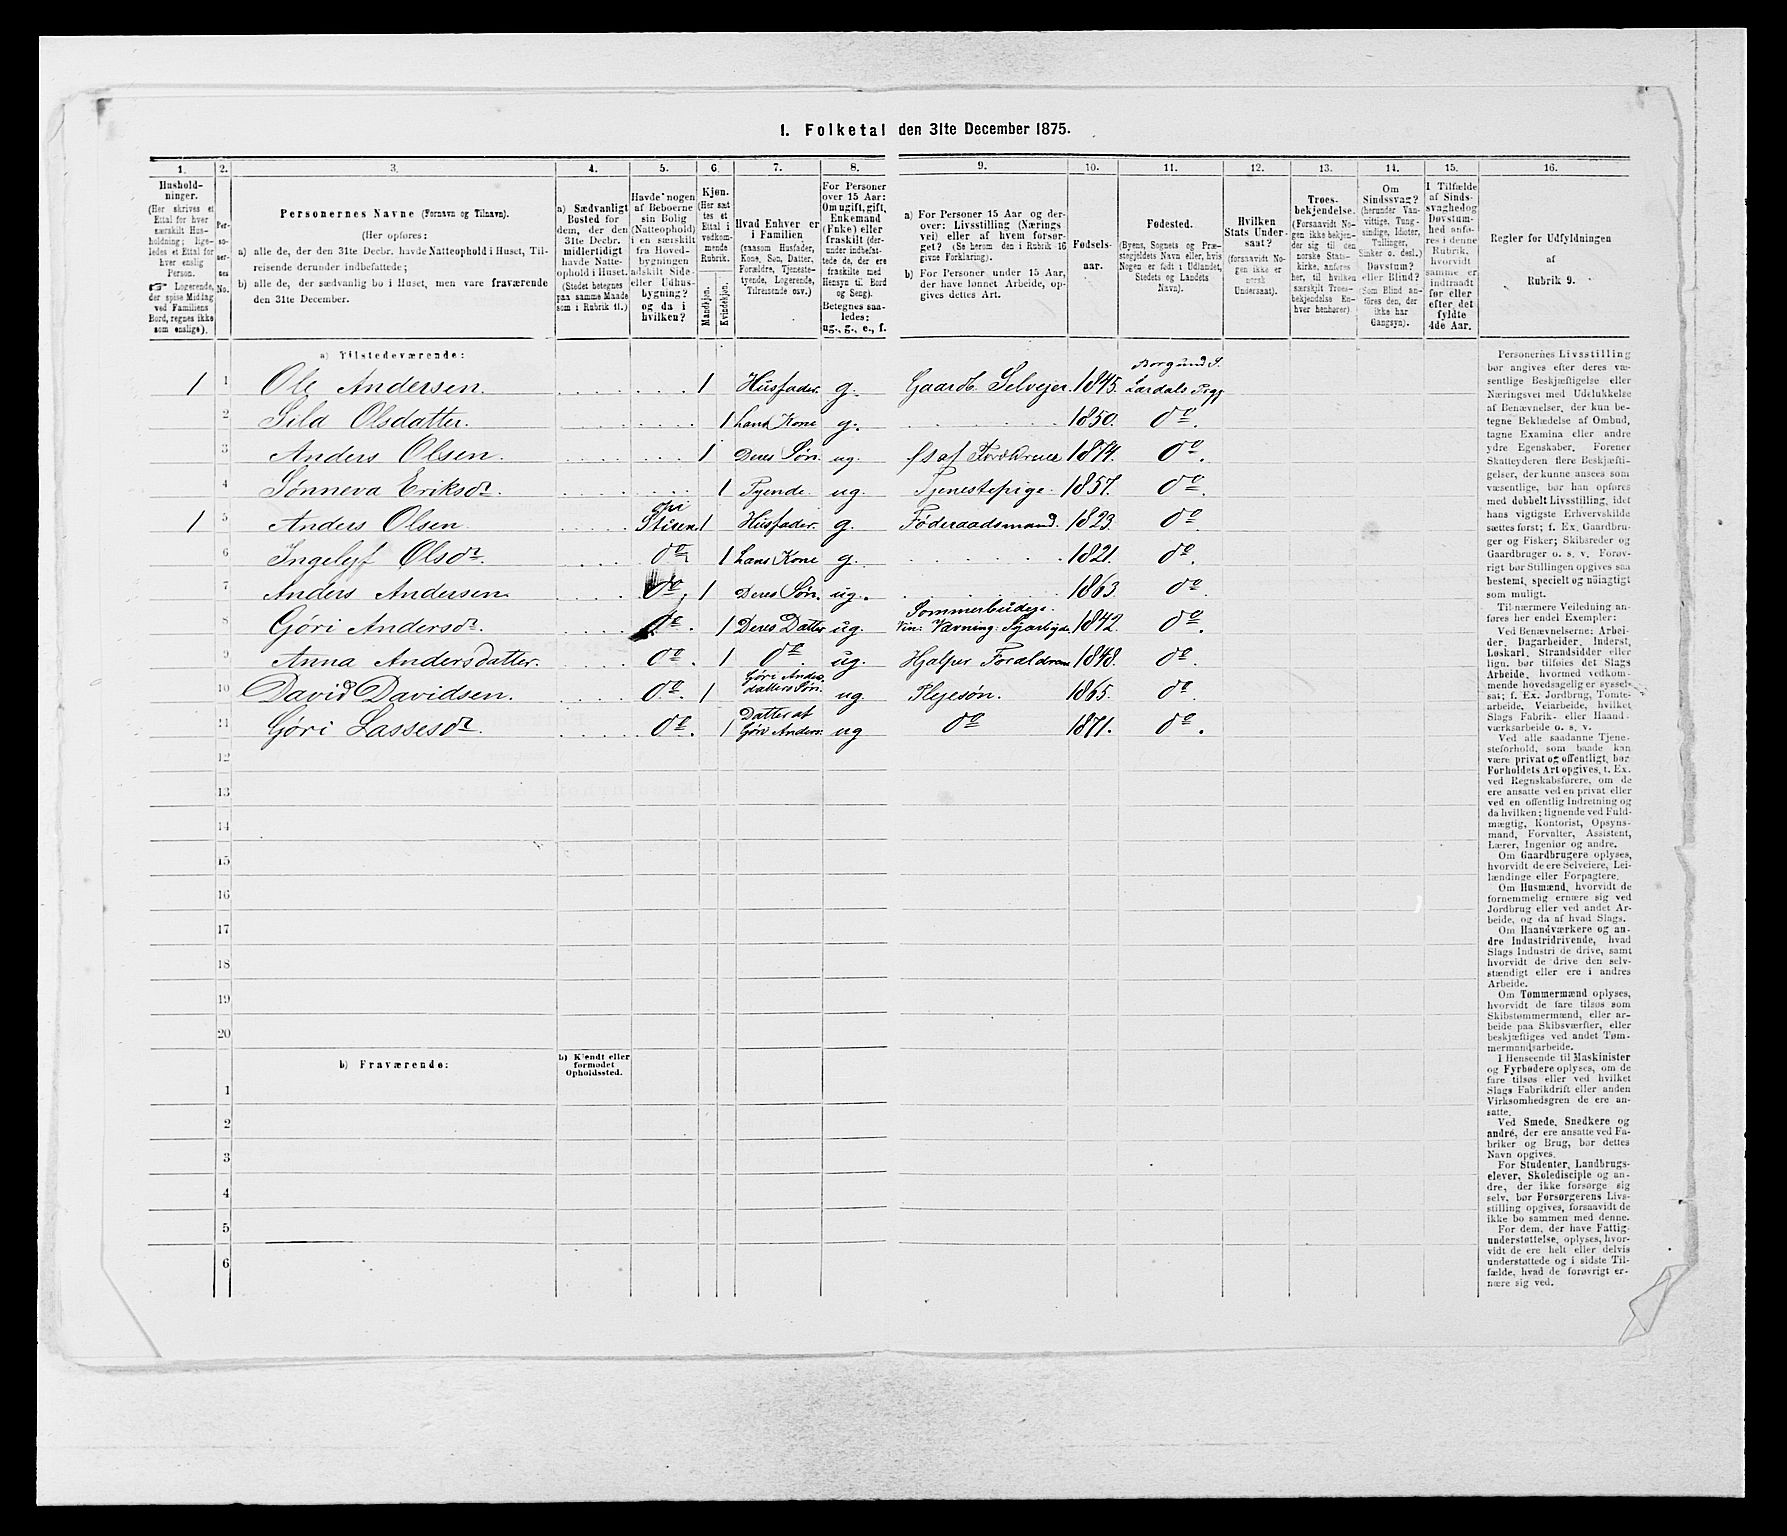 1. Folketal den 31te December 1875.
1. 2. 3. 4. 5. 6. 7. 8. 9. 10. 11. 12. 13. 14. 15. 16.
Husholdninger.
(Her skrives et Ettal for hver særskilt Husholdning; ligeledes et Ettal for hver enslig Person.
☞ Logerende, der spise Middag ved Familiens Bord, regnes ikke som enslige).
Personernes No.
Personernes Navne (Fornavn og Tilnavn).
(Her opføres:
a) alle de, der den 31te Decbr. havde Natteophold i Huset, Tilreisende derunder indbefattede;
b) alle de, der sædvanlig bo i Huset, men vare fraværende den 31te December.
a) Sædvanligt Bosted for dem, der den 31te Decbr. midlertidigt havde Natteophold i Huset. (Stedet betegnes paa samme Maade som i Rubrik 11.)
Havde nogen af Beboerne sin Bolig (Natteophold) i en særskilt fra Hovedbygningen adskilt Side- eller Udhusbygning? og da i hvilken?
Kjøn.
(Her sættes et Ettal i vedkommende Rubrik.
Mandkjøn.
Kvindekjøn.
Hvad Enhver er i Familien
(saasom Husfader, Kone, Søn, Datter, Forældre, Tjenestetyende, Logerende, Tilreisende osv.)
For Personer over 15 Aar: Om ugift, gift, Enkemand (Enke) eller fraskilt (derunder indbefattede de, der ere fraskilte med Hensyn til Bord og Seng). Betegnes saaledes: ug., g., e., f.
a) For Personer 15 Aar og derover: Livsstilling (Næringsvei) eller af hvem forsørget? (Se herom den i Rubrik 16 givne Forklaring).
b) For Personer under 15 Aar, der have lønnet Arbeide, opgives dettes Art.
Fødselsaar.
Fødested.
(Byens, Sognets og Præstegjeldets Navn eller, hvis Nogen er født i Udlandet, Stedets og Landets Navn).
Hvilken Stats Undersaat?
(forsaavidt Nogen ikke er norsk Undersaat).
Troesbekjendelse.
(Forsaavidt Nogen ikke bekjender sig til den norske Statskirke, anføres her, til hvilken særskilt Troesbekjendelse Enhver henhører)
Om Sindssvag? (herunder Vanvittige, Tungsindige, Idioter, Tullinger, Sinker o. desl.) Døvstum? eller Blind? (Som Blind anføres den, der ikke har Gangsyn).
I Tilfælde af Sindssvaghed og Døvstumhed anføres i denne Rubrik, hvorvidt samme er indtraadt før eller efter det fyldte 4de Aar.
Regler for Udfyldningen
af
Rubrik 9.
a) Tilstedeværende:
1 1 Ole Andersen. 1 Husfader. g. Gaardb. Selvejer 1845. Borgund S. Lærdals Prgj
2 Sila Olsdatter. 1 hans Kone g. 1850. do.
3 Anders Olsen. 1 Deres Søn. ug. 1874. do.
4 Sønneva Eriksdr. 1 Tyende. ug. Tjenestepige. 1857. do.
1 5 Anders Olsen Stuen 1 Husfader. g. Føderaadsmand. 1823. do
6 Ingelejf Olsdr. do 1 hans Kone g. 1821. do.
7 Anders Andersen do 1 Deres Søn. ug. 1863. do.
8 Gjøri Andersdr. do. 1 Deres Datter ug. Sommerbudeje. Vin: Vævning: Syarbejde 1842. do.
9 Anna Andersdatter. do. 1 do. ug. Hjælper Forældrene 1848. do.
10 David Davidsen. do. 1 Gjøri Andersdatters Søn. ug Plejesøn. 1865. do.
11 Gjøri Lassesdr. do. 1 Datter af Gjøri Anders. ug do 1871. do.
12
13
14
15
16
17
18
19
20
b) Fraværende:
b) Kjendt eller formodet Opholdssted.
1
2
3
4
5
6
Personernes Livsstilling
bør angives efter deres væ-
sentlige Beskjæftigelse eller
Næringsvei med Udelukkelse
af Benævnelser, der kun be-
tegne Beklædelse af Ombud,
tagne Examina eller andre
ydre Egenskaber. Forener
Skatteyderen flere Beskjæfti-
gelser, der kunne ansees som
væsentlige, bør han opføres
med dobbelt Livsstilling, idet
hans vigtigste Erhvervskilde
sættes først; f. Ex. Gaardbru-
ger og Fisker; Skibsreder og
Gaardbruger o. s. v. Forøv-
rigt bør Stillingen opgives saa
bestemt, specielt og nøiagtigt
som muligt.
Til nærmere Veiledning an-
føres her endel Exempler:
Ved Benævnelserne: Arbei-
der, Dagarbeider, Inderst,
Løskarl, Strandsidder eller
lign. bør tilføies det Slags
Arbeide, hvormed vedkom-
mende hovedsagelig er syssel-
sat; f. Ex. Jordbrug, Tomte-
arbeide, Veiarbeide, hvilket
Slags Fabrik- eller Haand-
værksarbeide o. s. v.
Ved alle saadanne Tjene-
steforhold, som baade kan
være privat og offentligt, bør
Forholdets Art opgives, t. Ex.
ved Regnskabsførere, om de
ere ansatte ved en privat eller
ved en offentlig Indretning og
da hvilken; lignende ved Fuld-
mægtig, Kontorist, Opsyns-
mand, Forvalter, Assistent,
Lærer, Ingeniør og andre.
Om Gaardbrugere oplyses,
hvorvidt de ere Selveiere, Lei-
lændinge eller Forpagtere.
Om Husmænd, hvorvidt de
fornemmelig ernære sig ved
Jordbrug eller ved andet Ar-
beide, og da af hvad Slags.
Om Haandværkere og an-
dre Industridrivende, hvad
Slags Industri de drive, samt
hvorvidt de drive den selv-
stændigt eller ere i andres
Arbeide.
Om Tømmermænd oplyses,
hvorvidt de fare tilsøs som
Skibstømmermænd, eller ar-
beide paa Skibsværfter, eller
beskjæftiges ved andet Tøm-
mermandsarbeide.
I Henseende til Maskinister
og Fyrbødere oplyses, om de
fare tilsøs eller ved hvilket
Slags Fabrikdrift eller anden
Virksomhedsgren de ere an-
satte.
Ved Smede, Snedkere og
andre, der ere ansatte ved Fa-
briker og Brug, bør dettes
Navn opgives.
For Studenter, Landbrugs-
elever, Skoledisciple og an-
dre, der ikke forsørge sig
selv, bør Forsørgerens Livs-
stilling opgives, forsaavidt de
ikke bo sammen med denne.
For dem, der have Fattig-
understøttelse, oplyses, hvor-
vidt de ere helt eller delvis
understøttede og i sidste Til-
fælde, hvad de forøvrigt er-
nære sig ved.